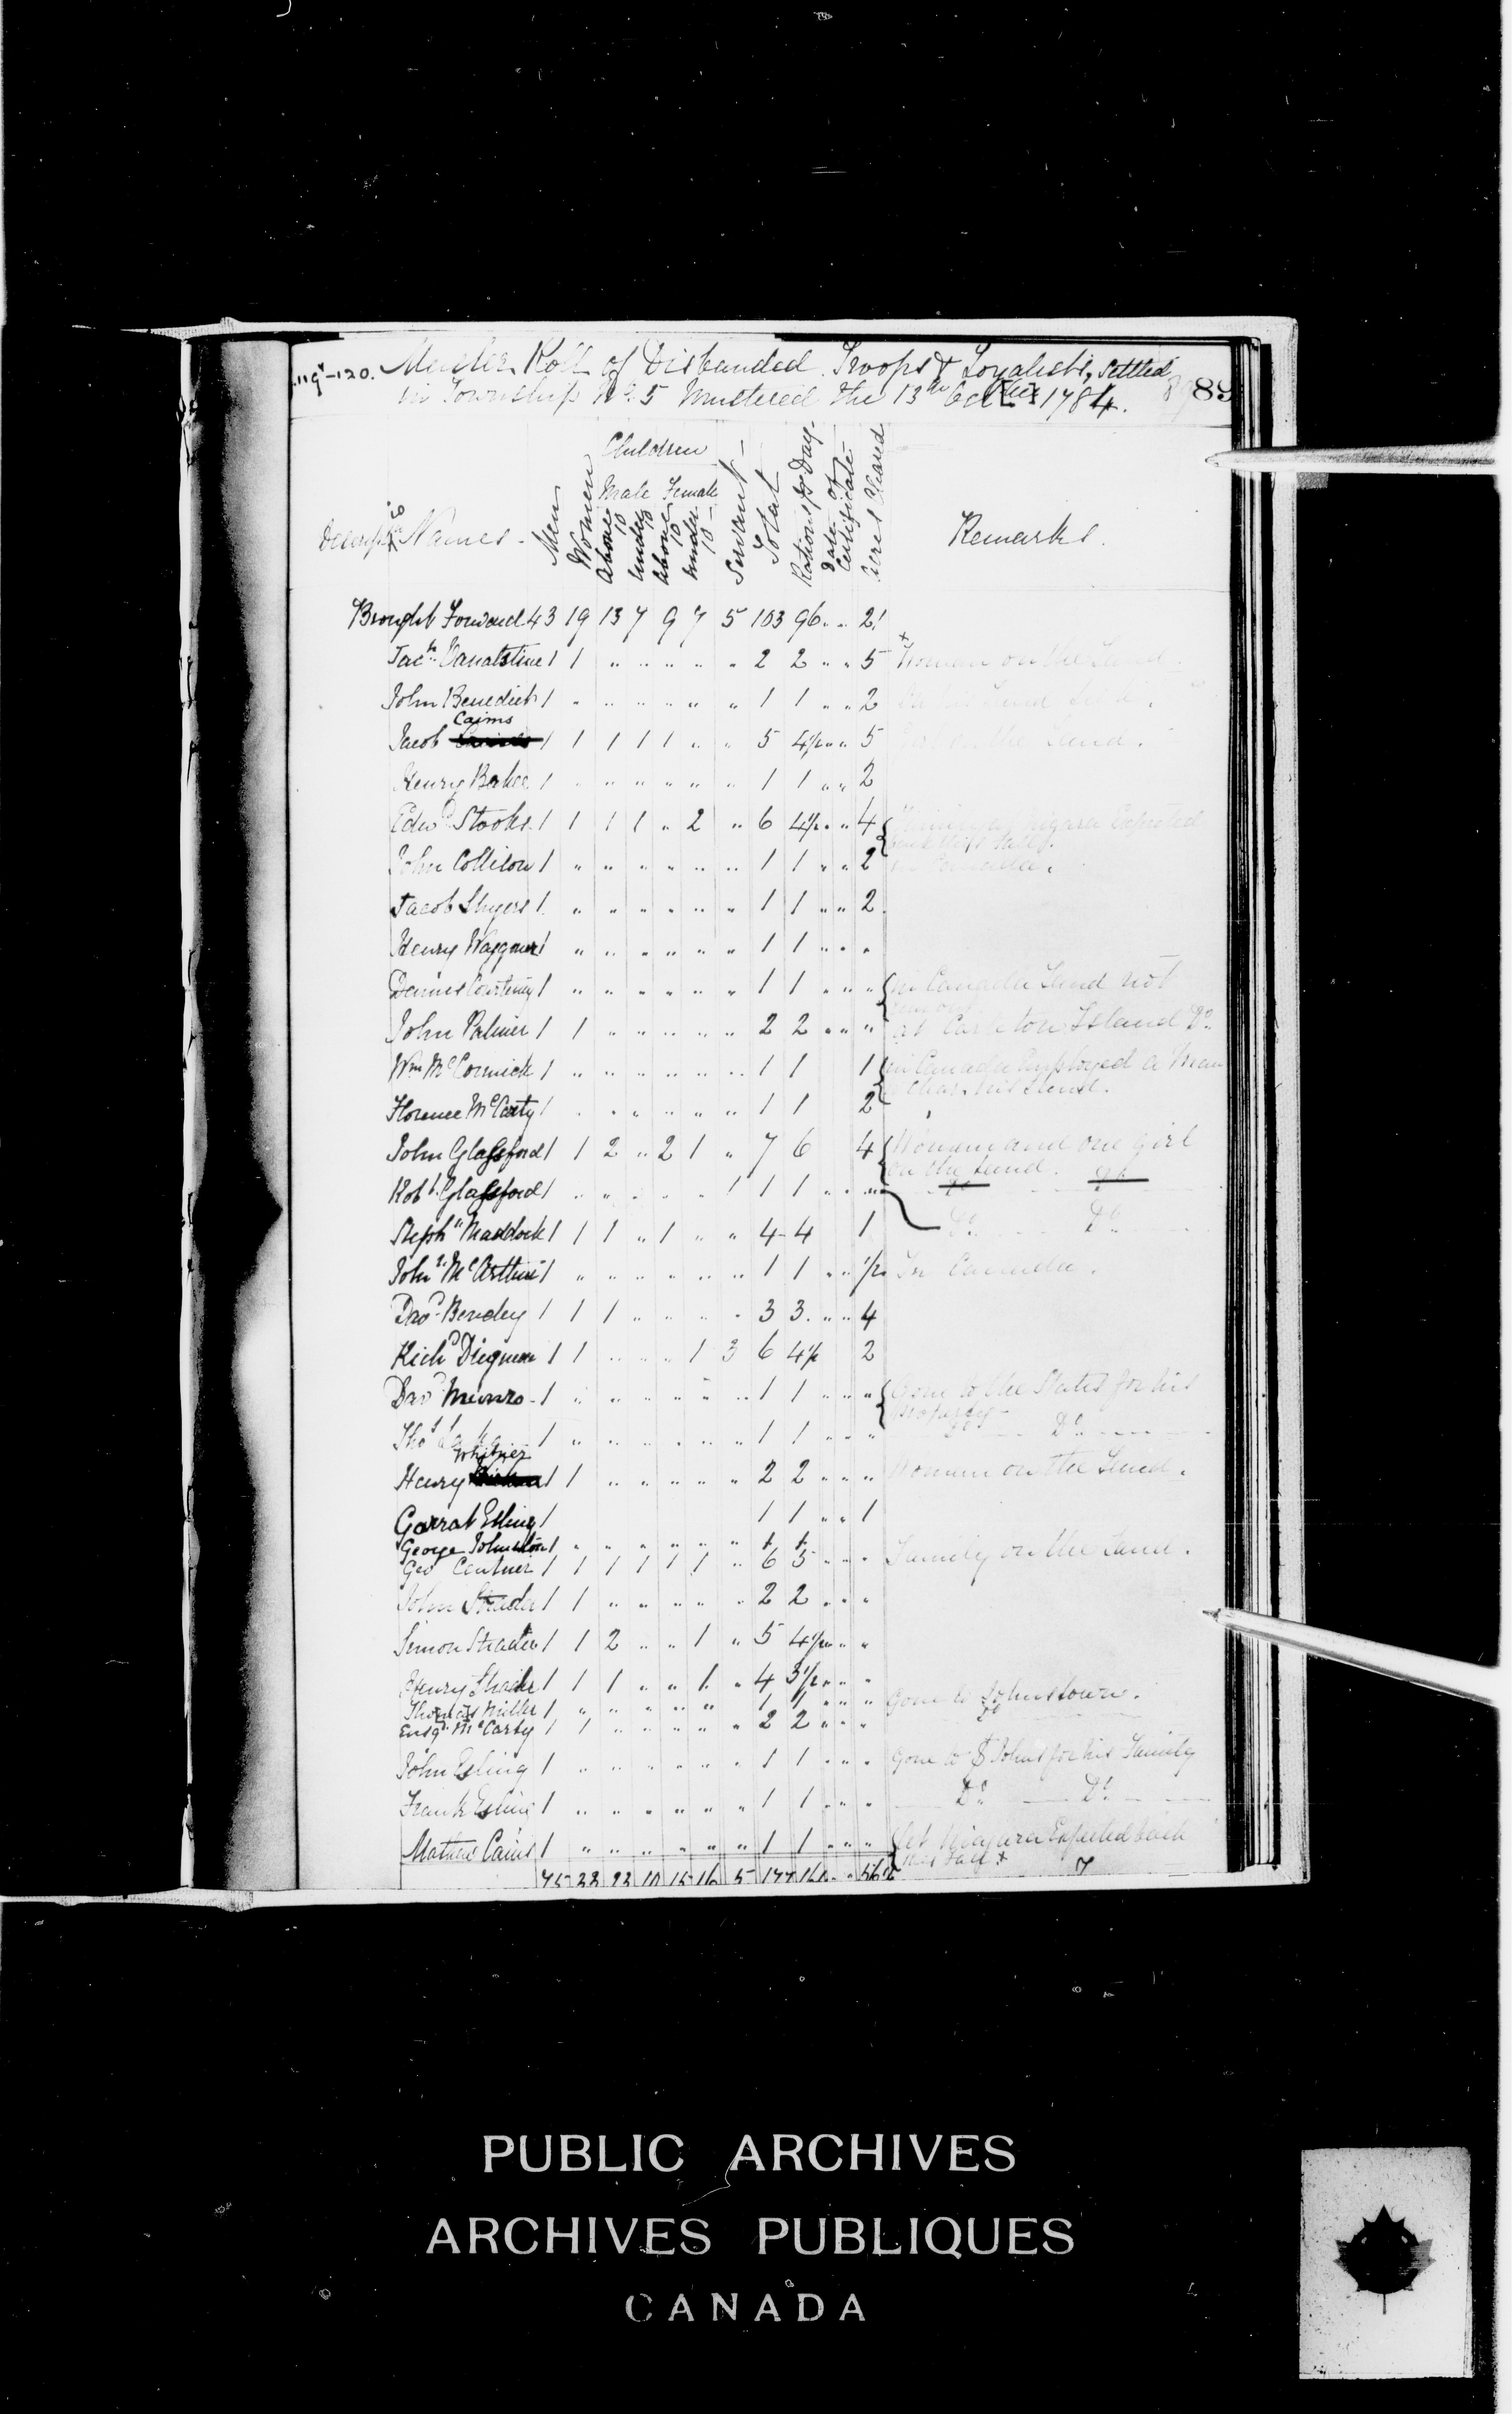 119-120. Muster Roll of Disbanded Troops & Loyalists, Settled
in Township No. 5 Mustered the 13th Oct 1784. 89
Children
Male Female
Names - Men Women above 10 under 10 above 10 under 10 - Servant - Total Rations pr Day - Date of Certificate - Acres Cleared Remarks.
Brought Forward 43 19 13 7 9 7 5 103 96 " " 21
Jach Vanalstine 1 1 " " " " " 2 2 " " 5 Woman on the Land.
John Benedict 1 " " " " " " 1 1 " " 2
Cairns
Jacob 1 1 1 1 1 " " 5 4½ " " 5 on the Land.
Henry Baker 1 " " " " " " 1 1 " " 2
Edwd Stooks 1 1 1 1 " 2 " 6 4½ " " 4 Family at Niagara Expected
John Collison 1 " " " " " " 1 1 " " 2 in Canada.
Jacob 1 " " " " " " 1 1 " " 2
Henry Waggoner 1 " " " " " " 1 1 " " "
Dennis Courtney 1 " " " " " " 1 1 " " " in Canada Land not
John Palmer 1 1 " " " " " 2 2 " " " at Carleton Island Do
Wm McCormick 1 " " " " " " 1 1 1 in Canada Employed a Man
Clear his Land.
Florence McCarty 1 " " " " " " 1 1 2
John Glassford 1 1 2 " 2 1 " 7 6 4 Woman and one girl
on the Land.
Robt Glassford 1 " " " " " " 1 1 " " " Do Do
Stephn Maddock 1 1 1 " 1 " " 4 4 1 Do Do
John McArthur 1 " " " " " " 1 1 " " ½ In Canada.
Davd Bendey 1 1 1 " " " " 3 3 " " 4
Richd Dingman 1 1 " " " 1 3 6 4½ 2
Davd Munro 1 " " " " " " 1 1 " " " Gone to the States for his
property
Thos 1 " " " " " " 1 1 " " " Do Do
Whitner
Henry 1 1 " " " " " 2 2 " " " Woman on the Land.
Garrat Esling 1 1 1 " " 1
George Johnston 1 " " " " " " 1 1
Geo Centner 1 1 1 1 1 1 " 6 5 " " " Family on the Land.
John Strader 1 1 " " " " " 2 2 " " "
Simon Strader 1 1 2 " " 1 " 5 4½ " " "
Henry Strader 1 1 1 " " 1 " 4 3½ " " "
Thomas Miller 1 " " " " " " 1 1 " " " Gone to Johnstown.
Ensgn McCarty 1 1 " " " " " 2 2 " " " Do
John Esling 1 " " " " " " 1 1 " " " Gone to St Johns for his Family
Frank Esling 1 " " " " " " 1 1 " " " Do Do
Mathew Cains 1 " " " " " " 1 1 " " " At Niagara Expected back
this Fall
75 33 23 10 15 16 5 177 160 " " 56½
PUBLIC ARCHIVES
ARCHIVES PUBLIQUES
CANADA